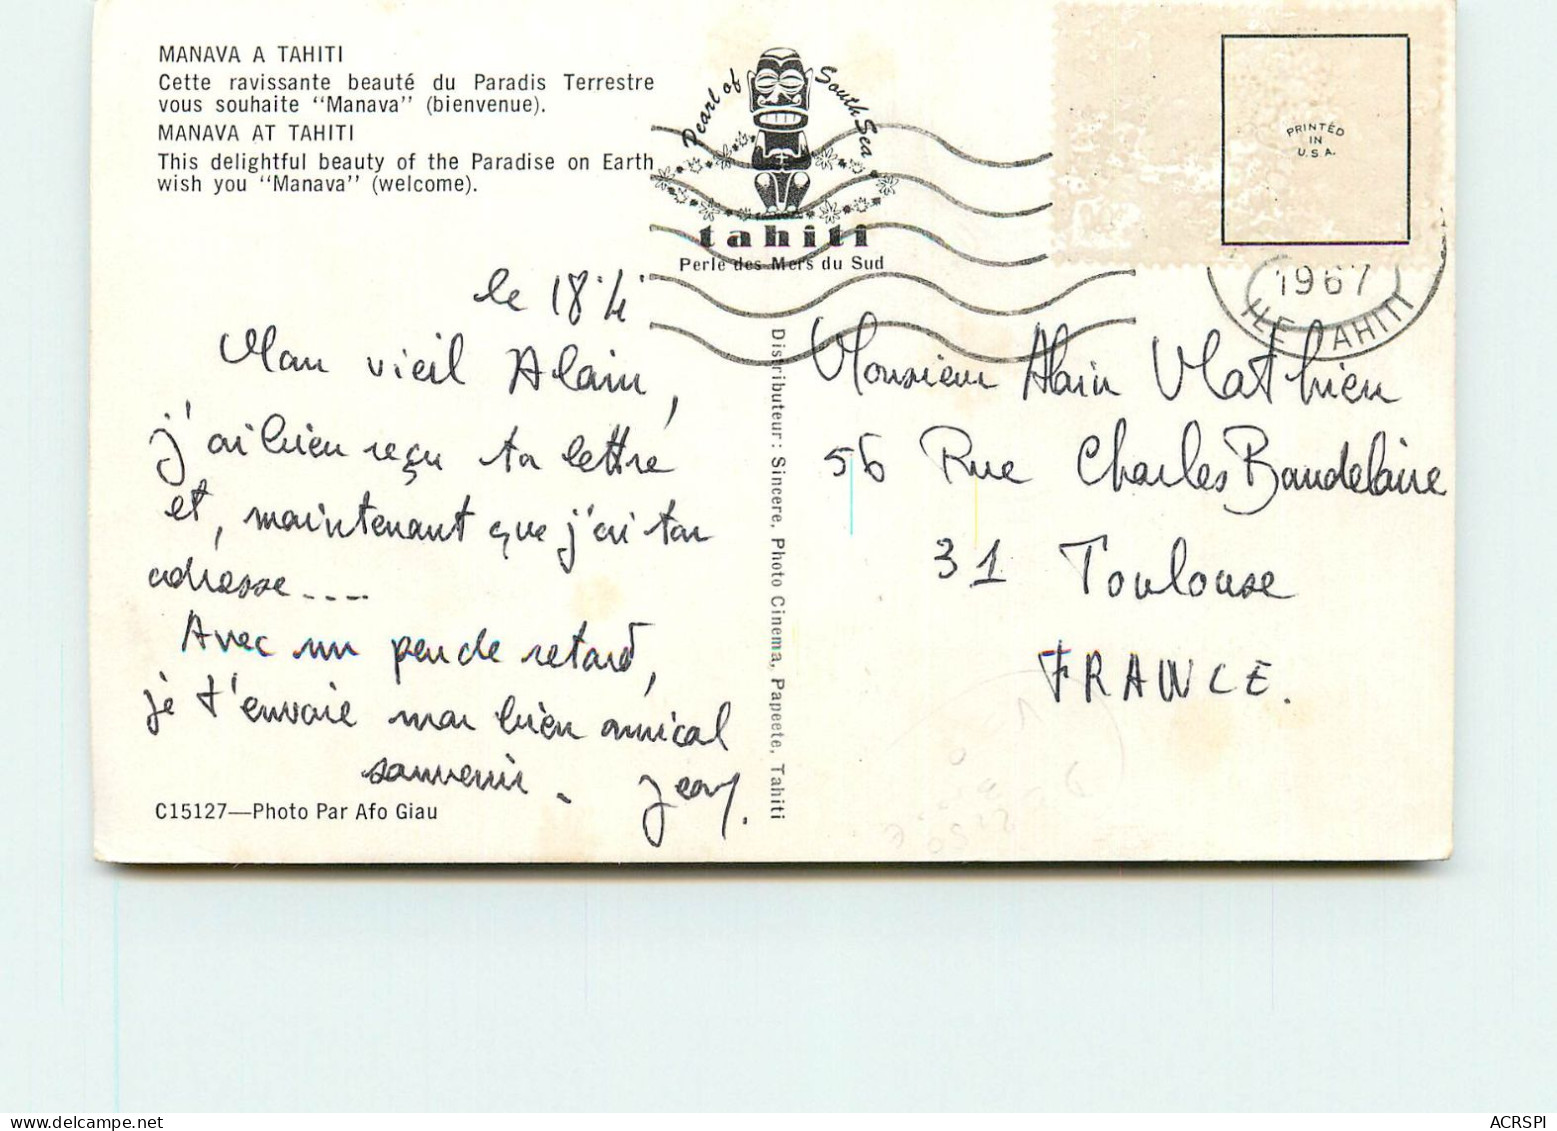 MANAVA A TAHITI
Cette ravissante beauté du Paradis Terrestre
vous souhaite "Manava" (bienvenue).
MANAVA AT TAHITI
This delightful beauty of the Paradise on Earth
wish you "Manava" (welcome).
Pearl of South Sea
tahiti
Perle des Mers du Sud
PRINTED
IN
U.S.A.
1967
ILE TAHITI
le 18.4.
Mon vieil Alain,
j'ai bien reçu ta lettre
et, maintenant que j'ai ton
adresse....
Avec un peu de retard,
je t'envoie mon bien amical
souvenir.
C15127—Photo Par Afo Giau
Distributeur: Sincere, Photo Cinema, Papeete, Tahiti
Monsieur Alain Mathieu
56 Rue Charles Baudelaire
31 Toulouse
FRANCE.
ACRSPI